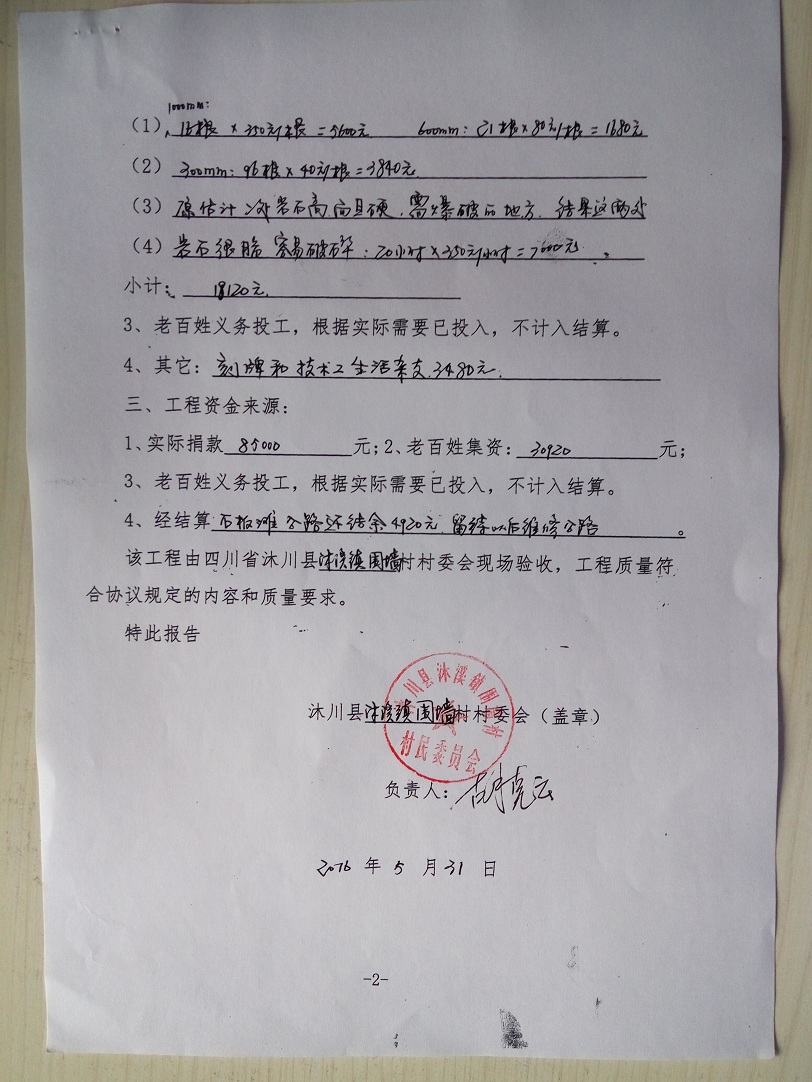 1000mm:
(1)、16根×350元/根=5600元 600mm:21根×80元/根=1680元
(2) 300mm:96根×40元/根=3840元
(3) 原估计 处岩石高而且硬,需 爆破的地方,结果这两处
(4) 岩石很脆 容易破碎:20小时×350元/小时=7000元 。
小计: 18120元
3、老百姓义务投工,根据实际需要已投入,不计入结算。
4、其它:刻牌和技术工生活杂支3480元
三、工程资金来源:
1、实际捐款 85000 元;2、老百姓集资: 30920 元;
3、老百姓义务投工,根据实际需要已投入,不计入结算。
4、经结算石板滩公路还结余4920元,留待以后维修公路 。
该工程由四川省沐川县沐溪镇围墙村村委会现场验收,工程质量符
合协议规定的内容和质量要求。
特此报告
沐川县沐溪镇围墙村村民委员会
沐川县沐溪镇围墙村村委会(盖章)
负责人:胡克云
2016 年 5 月 31 日
-2-